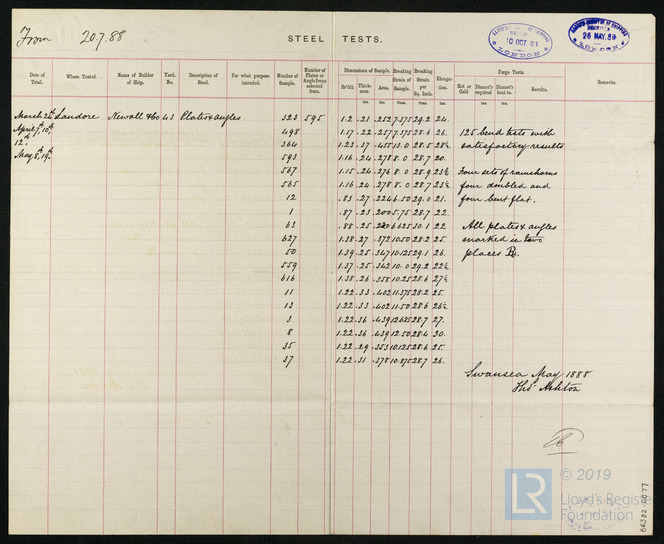 From 20.7.88
STEEL TESTS.
LLOYD'S REGISTER OF SHIPPING
10 OCT. 88
LONDON
26 MAY. 88
LONDON
Date of Trial. Where Tested. Name of Builder of Ship. Yard. No. Description of Steel. For what purpose intended. Number of Sample. Number of Plates or Angle Irons selected from. Dimensions of Sample. Br'dth Thickness. Area. Breaking Strain of Sample. Breaking Strain per Sq. Inch. Elongation. Forge Tests. Hot or Cold Diamet'r required Diamet'r bent to. Results. Remarks.
Ins. Ins. Ins. Tons. Tons. Ins. Ins.
March 24th Landore Newall & Co 43 Plates & angles 323 595 1.2 .21 .252 7.375 29.2 24.
April 7th, 10th 498 1.17 .22 .257 7.375 28.6 26. 125 bend tests with
12th 364 1.23 .37 .455 13.0 28.5 28½ satisfactory results
May 8th, 19th 593 1.16 .24 .278 8.0 28.7 20.
567 1.15 .24 .276 8.0 28.9 23½ Four sets of ramshorns
565 1.16 .24 .278 8.0 28.7 25½ four doubled and
12 .83 .27 .224 6.50 29.0 21. four bent flat.
1 .87 .23 .200 5.75 28.7 22.
63 .88 .25 .220 6.625 30.1 22. All plates & angles
627 1.38 .27 .372 10.50 28.2 25. marked in two
50 1.39 .25 .347 10.125 29.1 26. places
559 1.37 .25 .342 10.0 29.2 22½
616 1.38 .26 .358 10.25 28.6 27½
11 1.22 .33 .402 11.375 28.2 25.
13 1.22 .33 .402 11.50 28.6 26½
3 1.22 .36 .439 12.625 28.7 27.
8 1.22 .36 .439 12.50 28.4 30.
35 1.22 .29 .353 10.125 28.6 25.
37 1.22 .31 .378 10.875 28.7 26.
Swansea May 1888
Thos Ashton
LR
© 2019
Lloyd's Register
Foundation